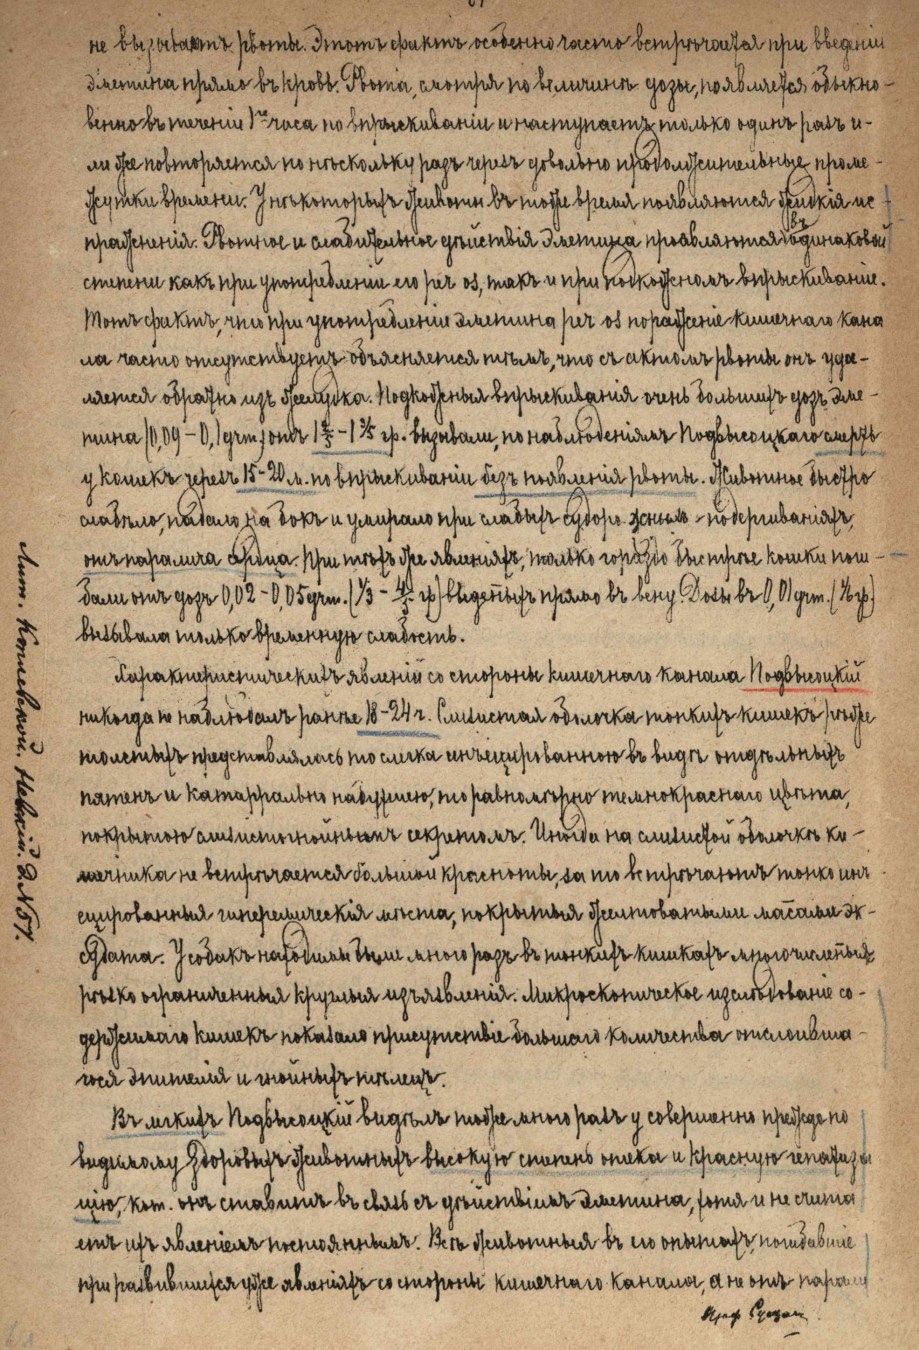 не вызываетъ рвоты. Этотъ фактъ особенно часто встрѣчается при введеніи
эметина прямо въ кровь. Рвота, смотря по величинѣ дозы, появляется обыкно-
венно въ теченіи 1го часа по впрыскиваніи и наступаетъ только одинъ разъ и-
ли же повторяется по нѣскольку разъ черезъ довольно продолжительные проме-
жутки времени. У нѣкоторыхъ животн. въ тоже время появляются жидкія ис
пражненія. Рвотное и слабительное дѣйствія эметина проявляются въ одинаковой
степени какъ при употребленіи его per os, такъ и при подкожномъ впрыскиваніе.
Тотъ фактъ, что при употребленіе эметина per os пораженіе кишечнаго кана
ла часто отсутствуетъ объясняется тѣмъ, что съ актомъ рвоты онъ уда-
ляется обратно изъ желудка. Подкожныя впрыскиванія очень большихъ дозъ эме-
тина (0,09-0,1 grm.) отъ 1 2/5-1 3/5 гр. вызывали, по наблюденіямъ Подвысоцкаго смерть
у кошекъ черезъ 15-20 м. по впрыскиваніи безъ появленія рвоты. Животное быстро
слабѣло, падало на бокъ и умирало при слабыхъ судорожныхъ подергиваніяхъ,
отъ паралича сердца. При тѣхъ же явленіяхъ, только гораздо быстрѣе кошки поги-
бали отъ дозъ 0,02-0,05 grm. (1/3-4/5 гр) введенныхъ прямо въ вену. Дозы въ 0,01 grm. (1/6 гр)
вызывала только временную слабость.
Характеристическихъ явленій со стороны кишечнаго канала Подвысоцкій
никогда не наблюдалъ ранѣе 18-24 ч. Слизистая оболочка тонкихъ кишекъ рѣже
толстыхъ представлялась то слегка инъецированною въ видѣ отдѣльныхъ
пятенъ и катаррально набухшею, то равномѣрно темнокраснаго цвѣта,
покрытою слизистогнойнымъ секретомъ. Иногда на слизистой оболочкѣ ки-
шечника не встрѣчается большой красноты, за то встрѣчаютъ тонко инъ
ецированныя гиперемическія мѣста, покрытыя желтоватыми массами эк-
судата. У собакъ находимы были много разъ въ тонкихъ кишкахъ многочисленныя
рѣзко ограниченныя круглыя изъязвленія. Микроскопическое изслѣдованіе со-
держимаго кишекъ показало присутствіе большаго количества отслоивша-
гося эпителія и гнойныхъ тѣлецъ.
Въ легкихъ Подвысоцкій видѣлъ тоже много разъ у совершенно прежде по
видимому здоровыхъ животныхъ высокую степень отека и красную гепатиза
цію, кот. онъ ставитъ въ связь съ дѣйствіемъ эметина, хотя и не счита
етъ ихъ явленіемъ постояннымъ. Всѣ животныя въ его опытахъ, погибавшіе
при развившихся уже явленіяхъ со стороны кишечнаго канала, а не отъ парали
Лит. Невскій. д. № 57.